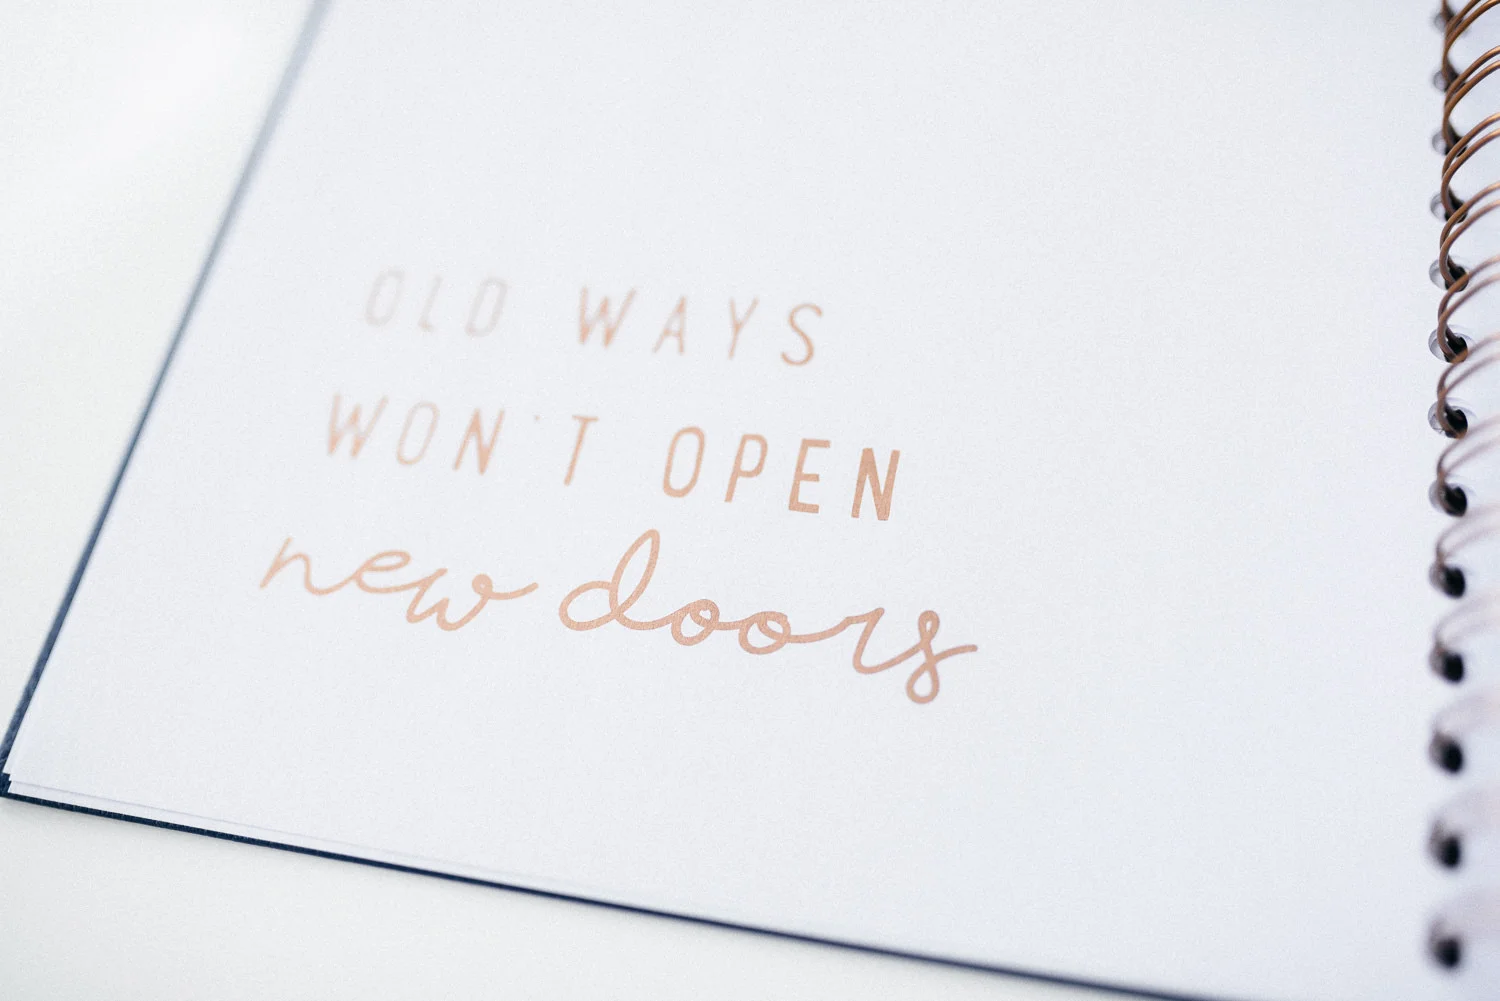 OLD WAYS
WON'T OPEN
new doors